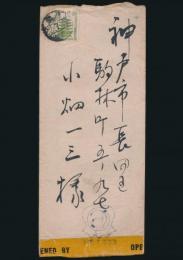 神戸市長田区
駒林町五ノ九七
小畑一三様
ENED BY
OPE